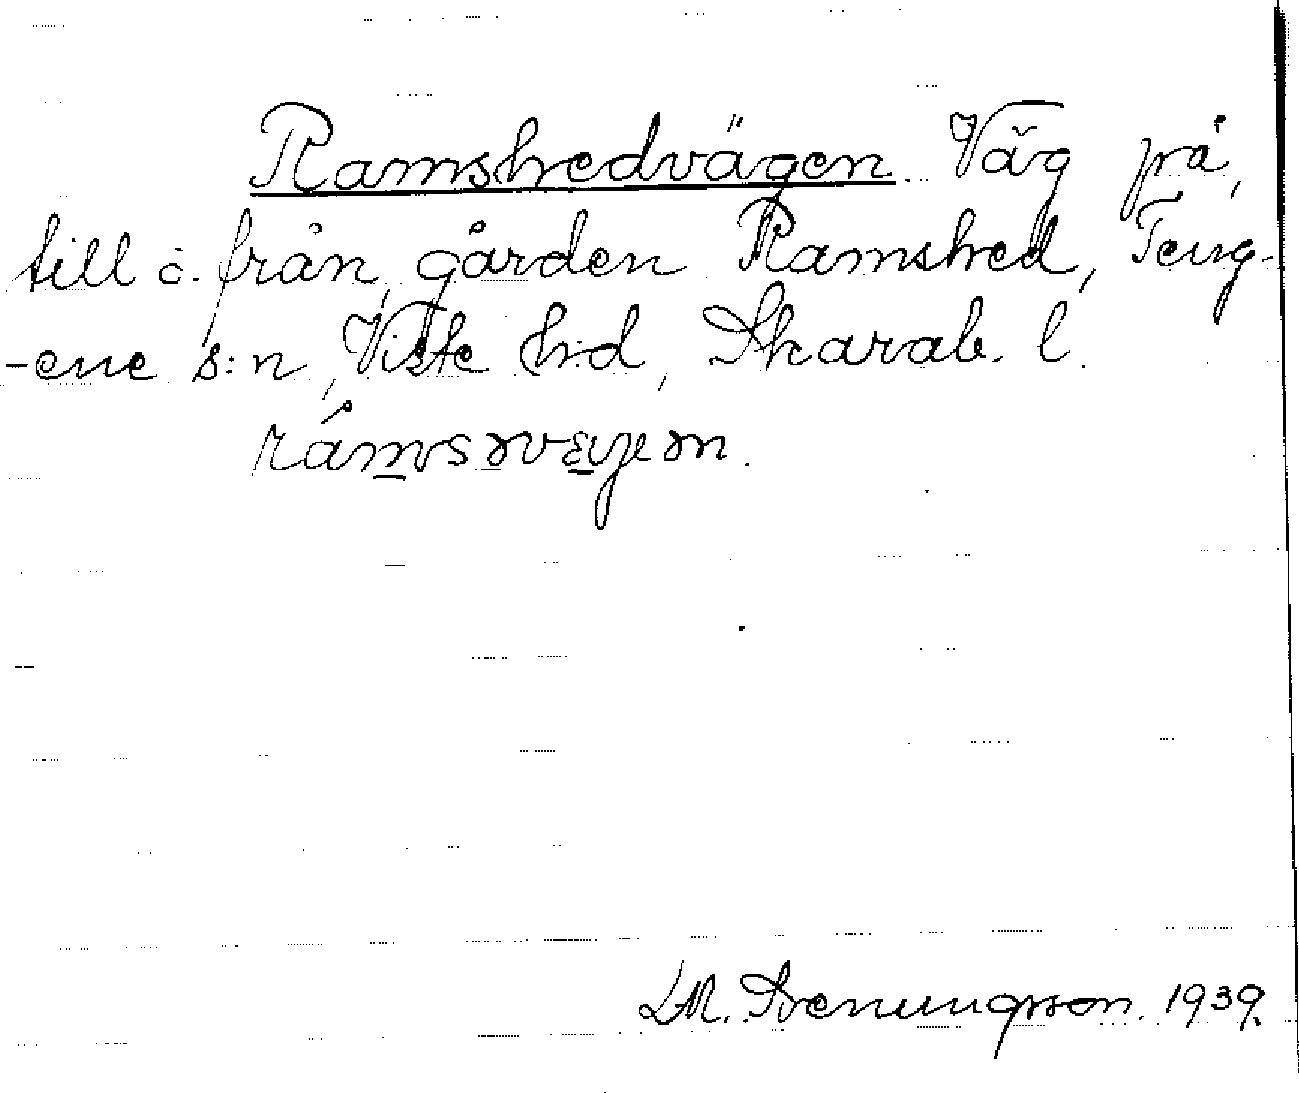 Ramshedvägen. Väg på,
till o. från, gården Ramshed, Teng-
-ene s:n, Viste h:d, Skarab. l.
rámsəvɛjen.
LM. Svenungsson. 1939.